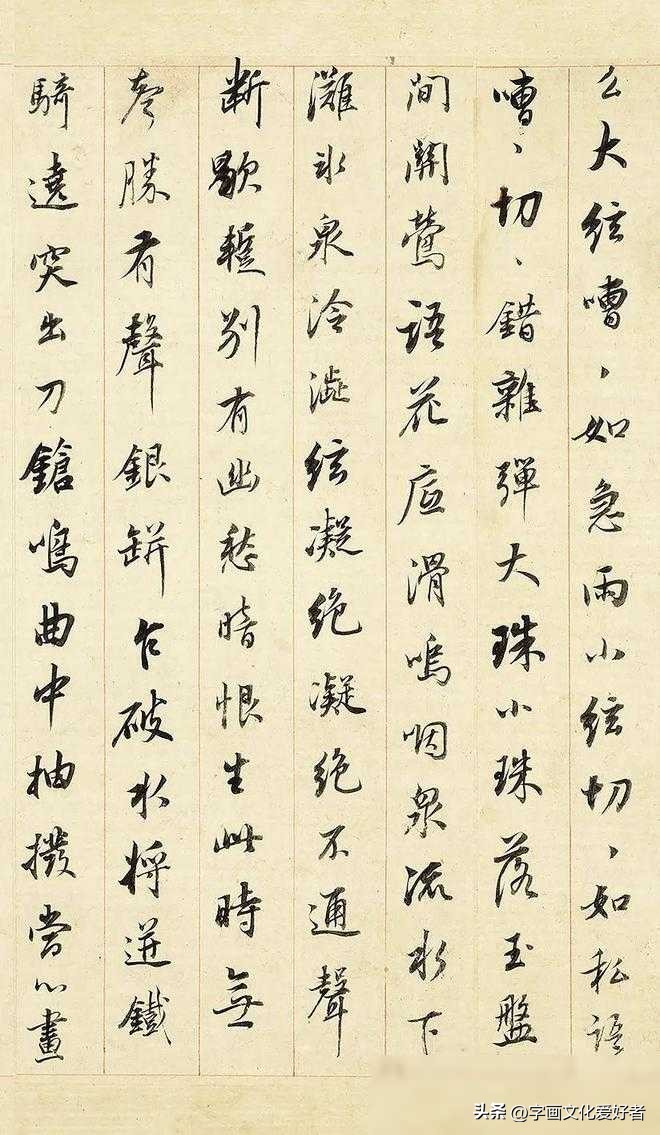 么大絃嘈、如急雨小絃切、如私語
嘈、切、錯雜彈大珠小珠落玉盤
間關鶯語花底滑嗚咽泉流水下
灘氷泉冷澁絃凝絶凝絶不通聲
斷歇蹔別有幽愁暗恨生此時無
勝有聲銀缾乍破水將迸鐵
騎遶突出刀鎗鳴曲中抽撥當心畫
头条 @字画文化爱好者